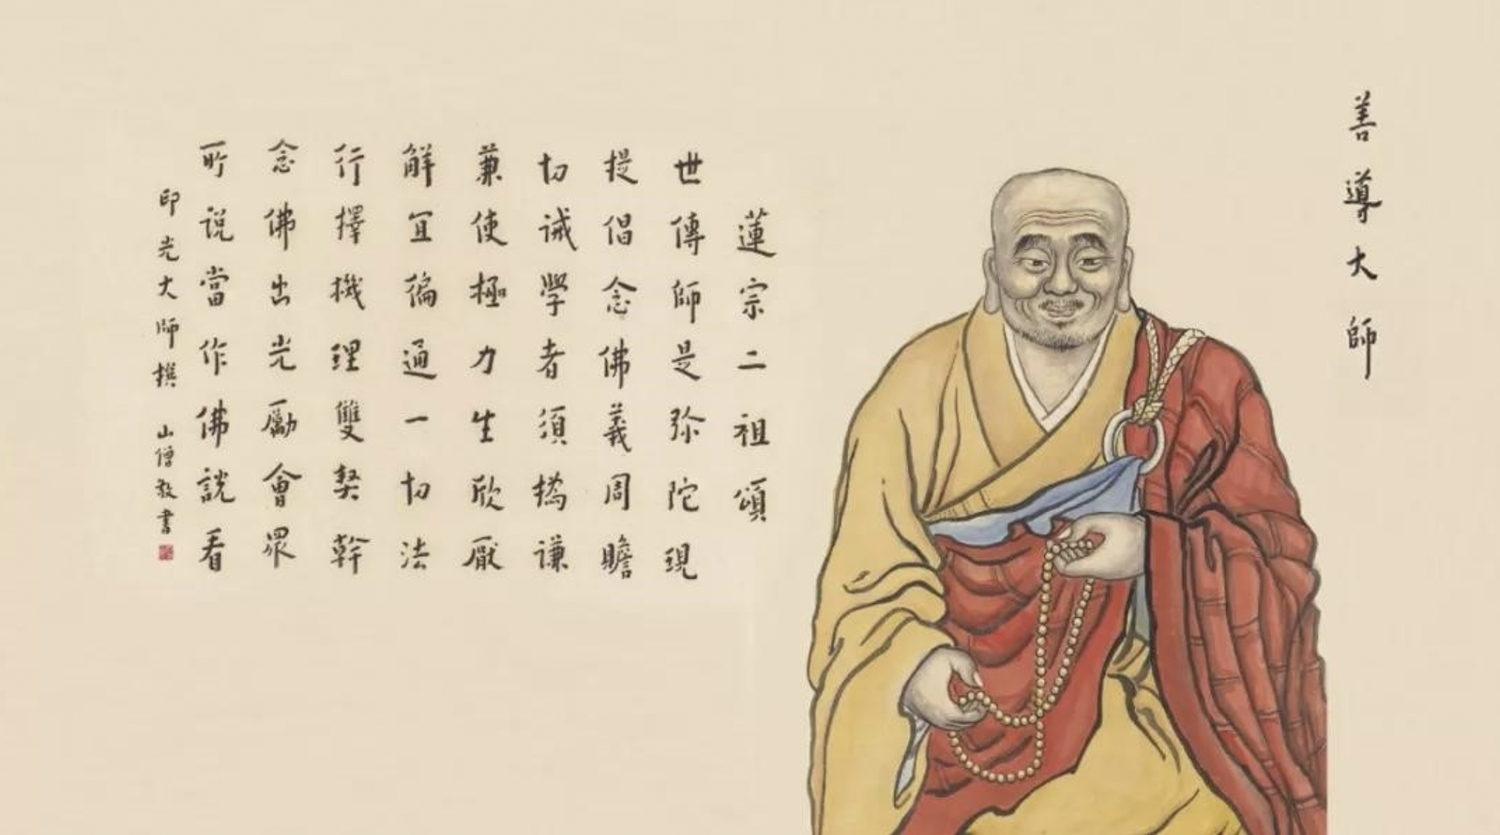 善導大師
蓮宗二祖頌
世傳師是弥陀現
提倡念佛義周贍
切誡學者須撝謙
兼使極力生欣厭
解宜徧通一切法
行擇機理雙契幹
念佛出光勵會眾
所說當作佛說看
印光大師撰 山僧書